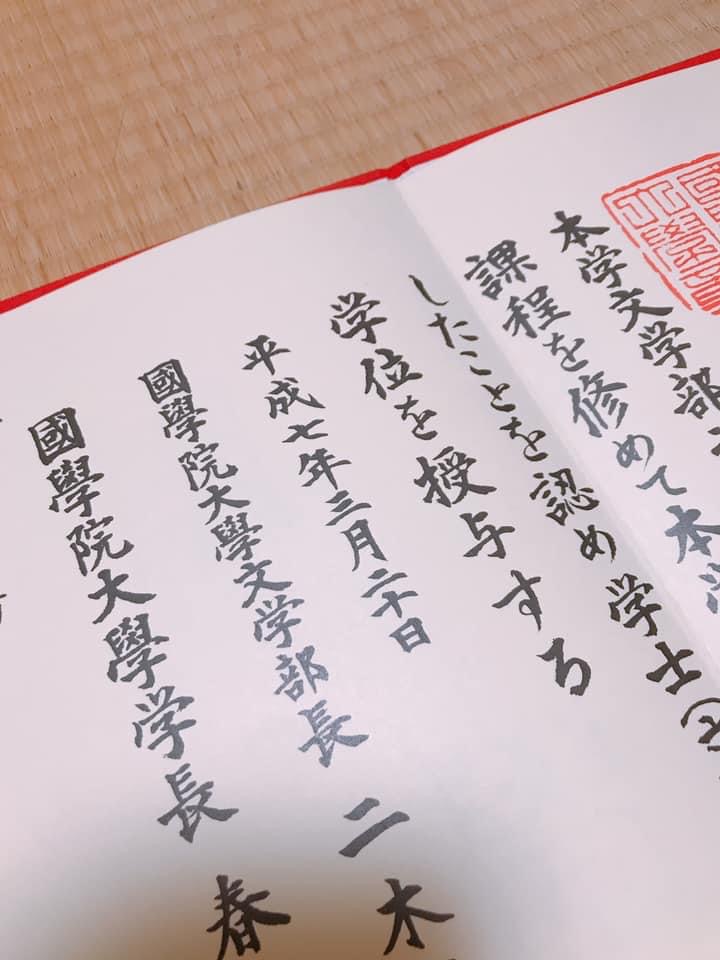 本学文学部
課程を修めて本学
したことを認め学士（
学位を授与する
平成七年三月二十日
國學院大學文学部長 二木
國學院大學学長 春